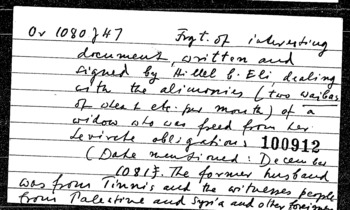 Or 1080 J 47 Frgt. of interesting
document, written and
signed by Hillel b. Eli dealing
with the alimonies (two waibas
of wheat etc. per month) of a
widow who was freed from her
levirate obligations 100912
(Date mentioned: December
1081). The former husband
was from Tinnis and the witnesses people
from Palestine and Syria and other foreigners